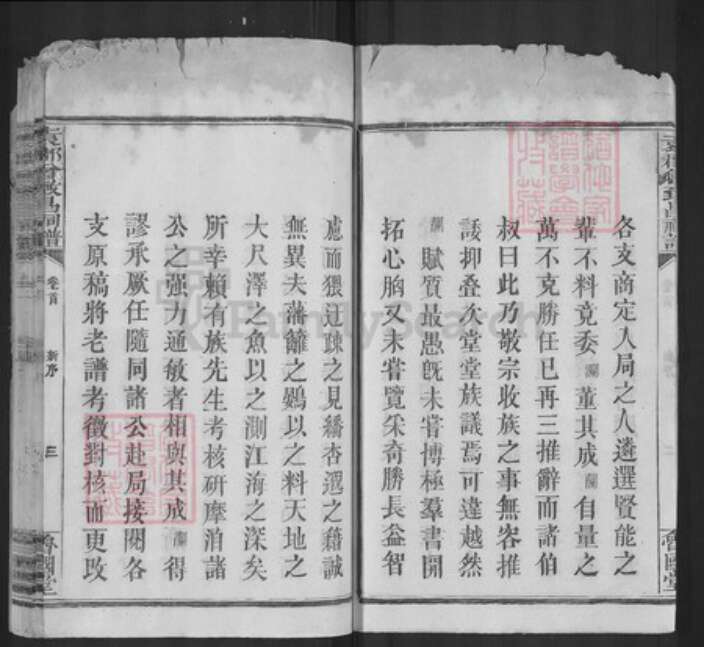 各支商定入局之人遴選賢能之
輩不料竟委瀾董其成瀾自量之
萬不克勝任已再三推辭而諸伯
叔曰此乃敬宗收族之事無容推
諉抑叠次堂堂族議焉可違越然
瀾賦質最愚既未嘗博極羣書開
拓心胸又未嘗覽采奇勝長益智
慮而猥迂疎之見繙杏邈之籍誠
無異夫藩籬之鷃以之料天地之
大尺澤之魚以之測江海之深矣
所幸賴有族先生考核研摩洎諸
公之强力通敏者相與其成瀾得
謬承厥任隨同諸公赴局接閱各
支原稿將老譜考徵對核而更改
卷首
新序
三
魯國堂
魯國堂
FamilySearch